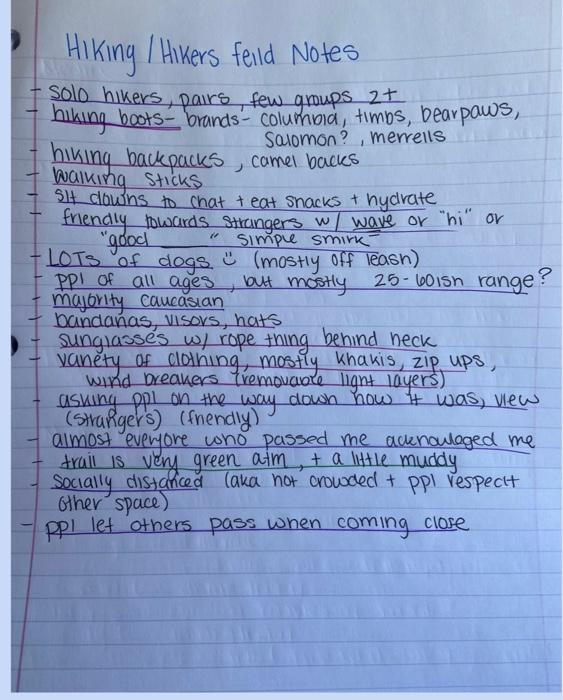 Hiking / Hikers feild Notes
- solo hikers, pairs, few groups 2+
- hiking boots - brands - columbia, timbs, bearpaws,
Salomon?, merrells
- hiking backpacks, camel backs
- walking sticks
- sit downs to chat + eat snacks + hydrate
- friendly towards strangers w/ wave or "hi" or
"good ____" simple smirk
- LOTS of dogs ü (mostly off leash)
- ppl of all ages, but mostly 25-60ish range?
- majority caucasian
- bandanas, visors, hats
- sunglasses w/ rope thing behind neck
- variety of clothing, mostly khakis, zip ups,
wind breakers (removable light layers)
- asking ppl on the way down how it was, view
(strangers) (friendly)
- almost everyone who passed me acknowlaged me
- trail is very green atm, + a little muddy
- socially distanced (aka not crowded + ppl respect
other space)
- ppl let others pass when coming close